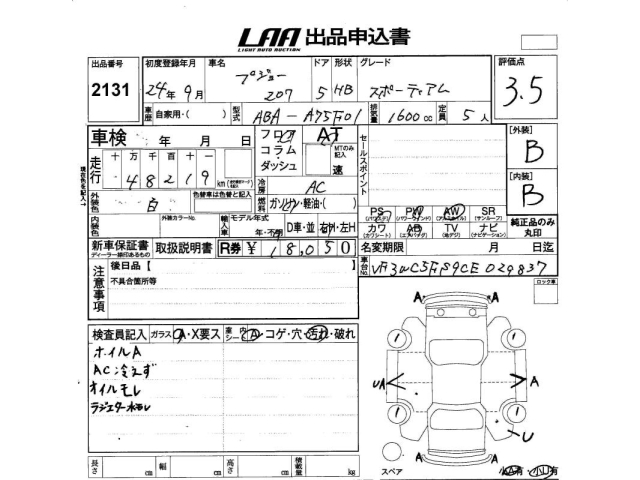 LAA 出品申込書
LIGHT AUTO AUCTION
出品番号 初度登録年月 車名 ドア 形状 グレード 評価点
2131 24年9月 プジョー 207 5 HB スポーティアム 3.5
車歴 自家用・( ) 型式 ABA-A75F01 排気量 1600cc 定員 5人
車検 年 月 日 フロア コラム・ダッシュ AT MTのみ記入 速 セールスポイント [外装] B
走行 十万千百十一 48219 km 冷房 AC [内装] B
外装色 白 色替車は色替と記入 燃料 ガソリン・軽油・( )
内装色 外装カラーNo. 輸入車 モデル年式 年・不明 D車・並 右H・左H
PS (パワステ) PW (パワーウインド) AW (アルミホイル) SR (サンルーフ)
カワ (カワシート) AB (エアバッグ) TV (地デジ) ナビ (ナビゲーション) 純正品のみ丸印
新車保証書 ディーラー横印あるもの 取扱説明書 R券 ¥18,050 名変期限 月 日迄
車台No. VF3WC5FS9CE029837
注意事項 後日品【 ロック車
不具合箇所等
検査員記入 ガラス A・X要ス 車内シート A・コゲ・穴・汚れ・破れ
オイルA
AC冷えず
オイルモレ
ラジエター水モレ
A A
UA A
U
A A
長さ cm 幅 cm 高さ cm 積載量 kg スペア 小A有・小U有